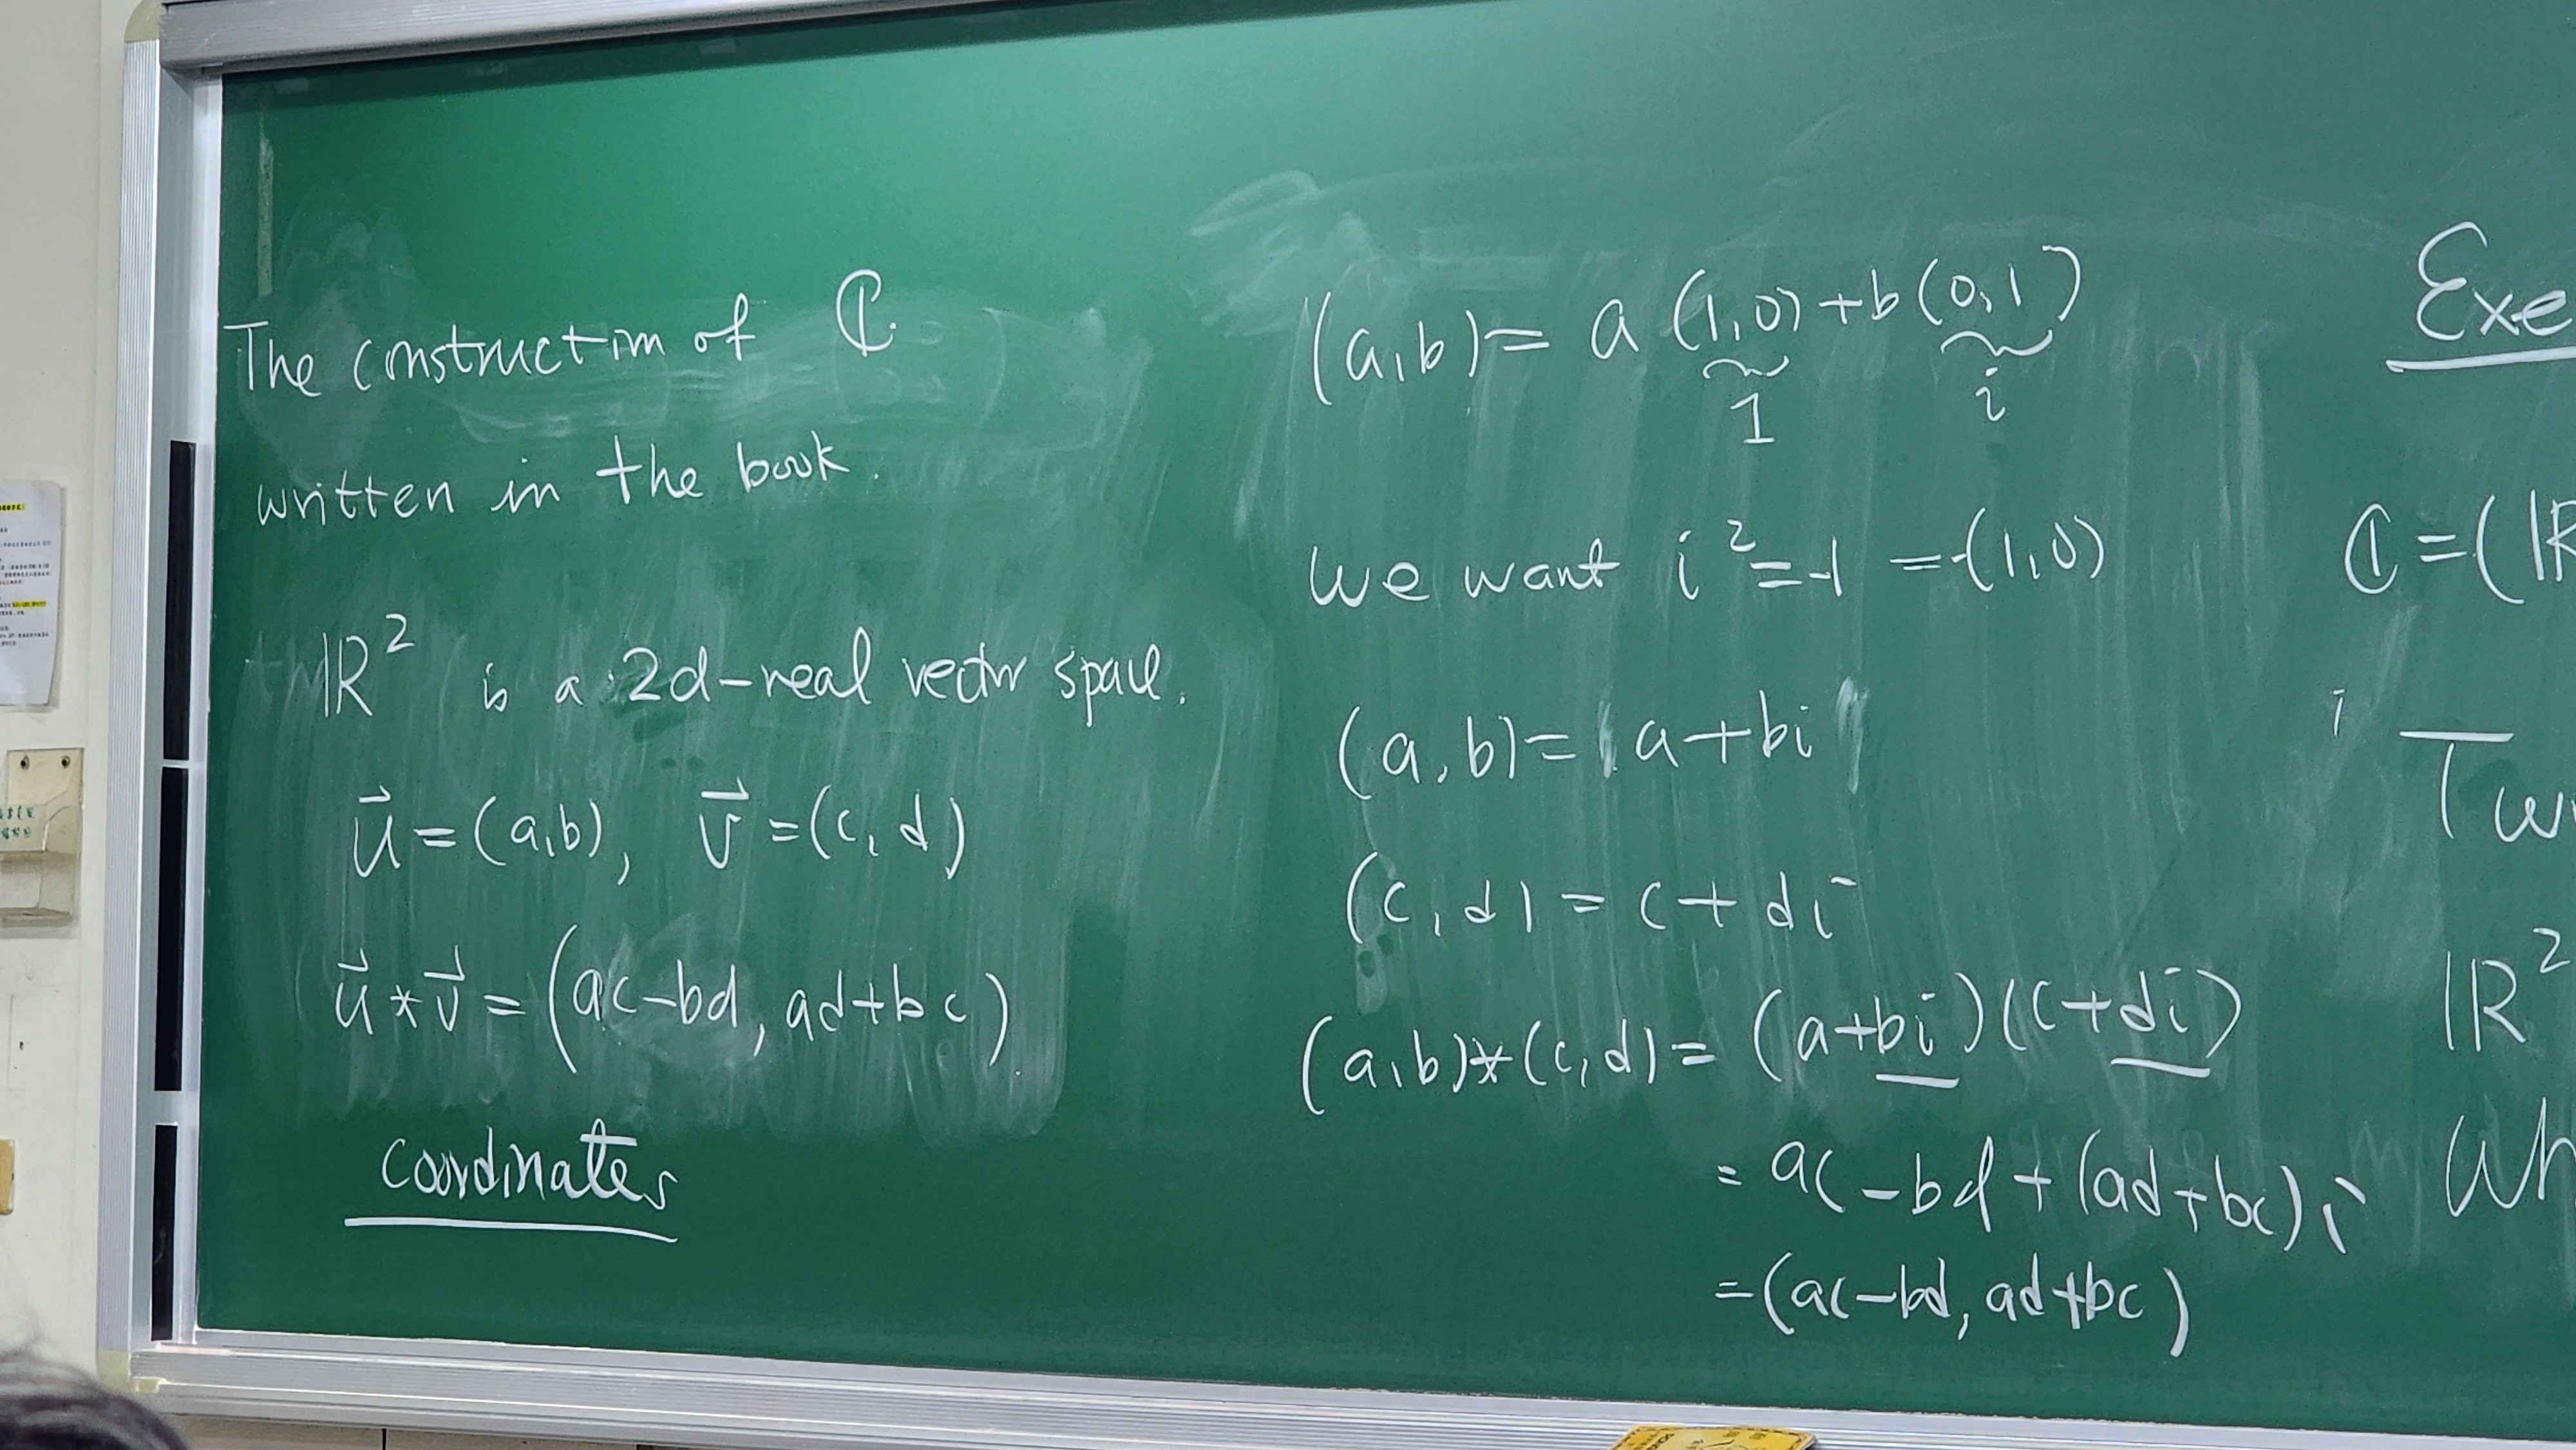 The construction of ℂ
written in the book.
ℝ² is a 2d-real vector space.
u⃗ = (a,b), v⃗ = (c,d)
u⃗ * v⃗ = (ac-bd, ad+bc)
coordinates
(a,b) = a(1,0)+b(0,1)
1 i
we want i² = -1 = -(1,0)
(a,b) = a+bi
(c,d) = c+di
(a,b)*(c,d) = (a+bi)(c+di)
= ac-bd+(ad+bc)i
= (ac-bd, ad+bc)
Exe
ℂ = (ℝ
Tw
ℝ²
Wh